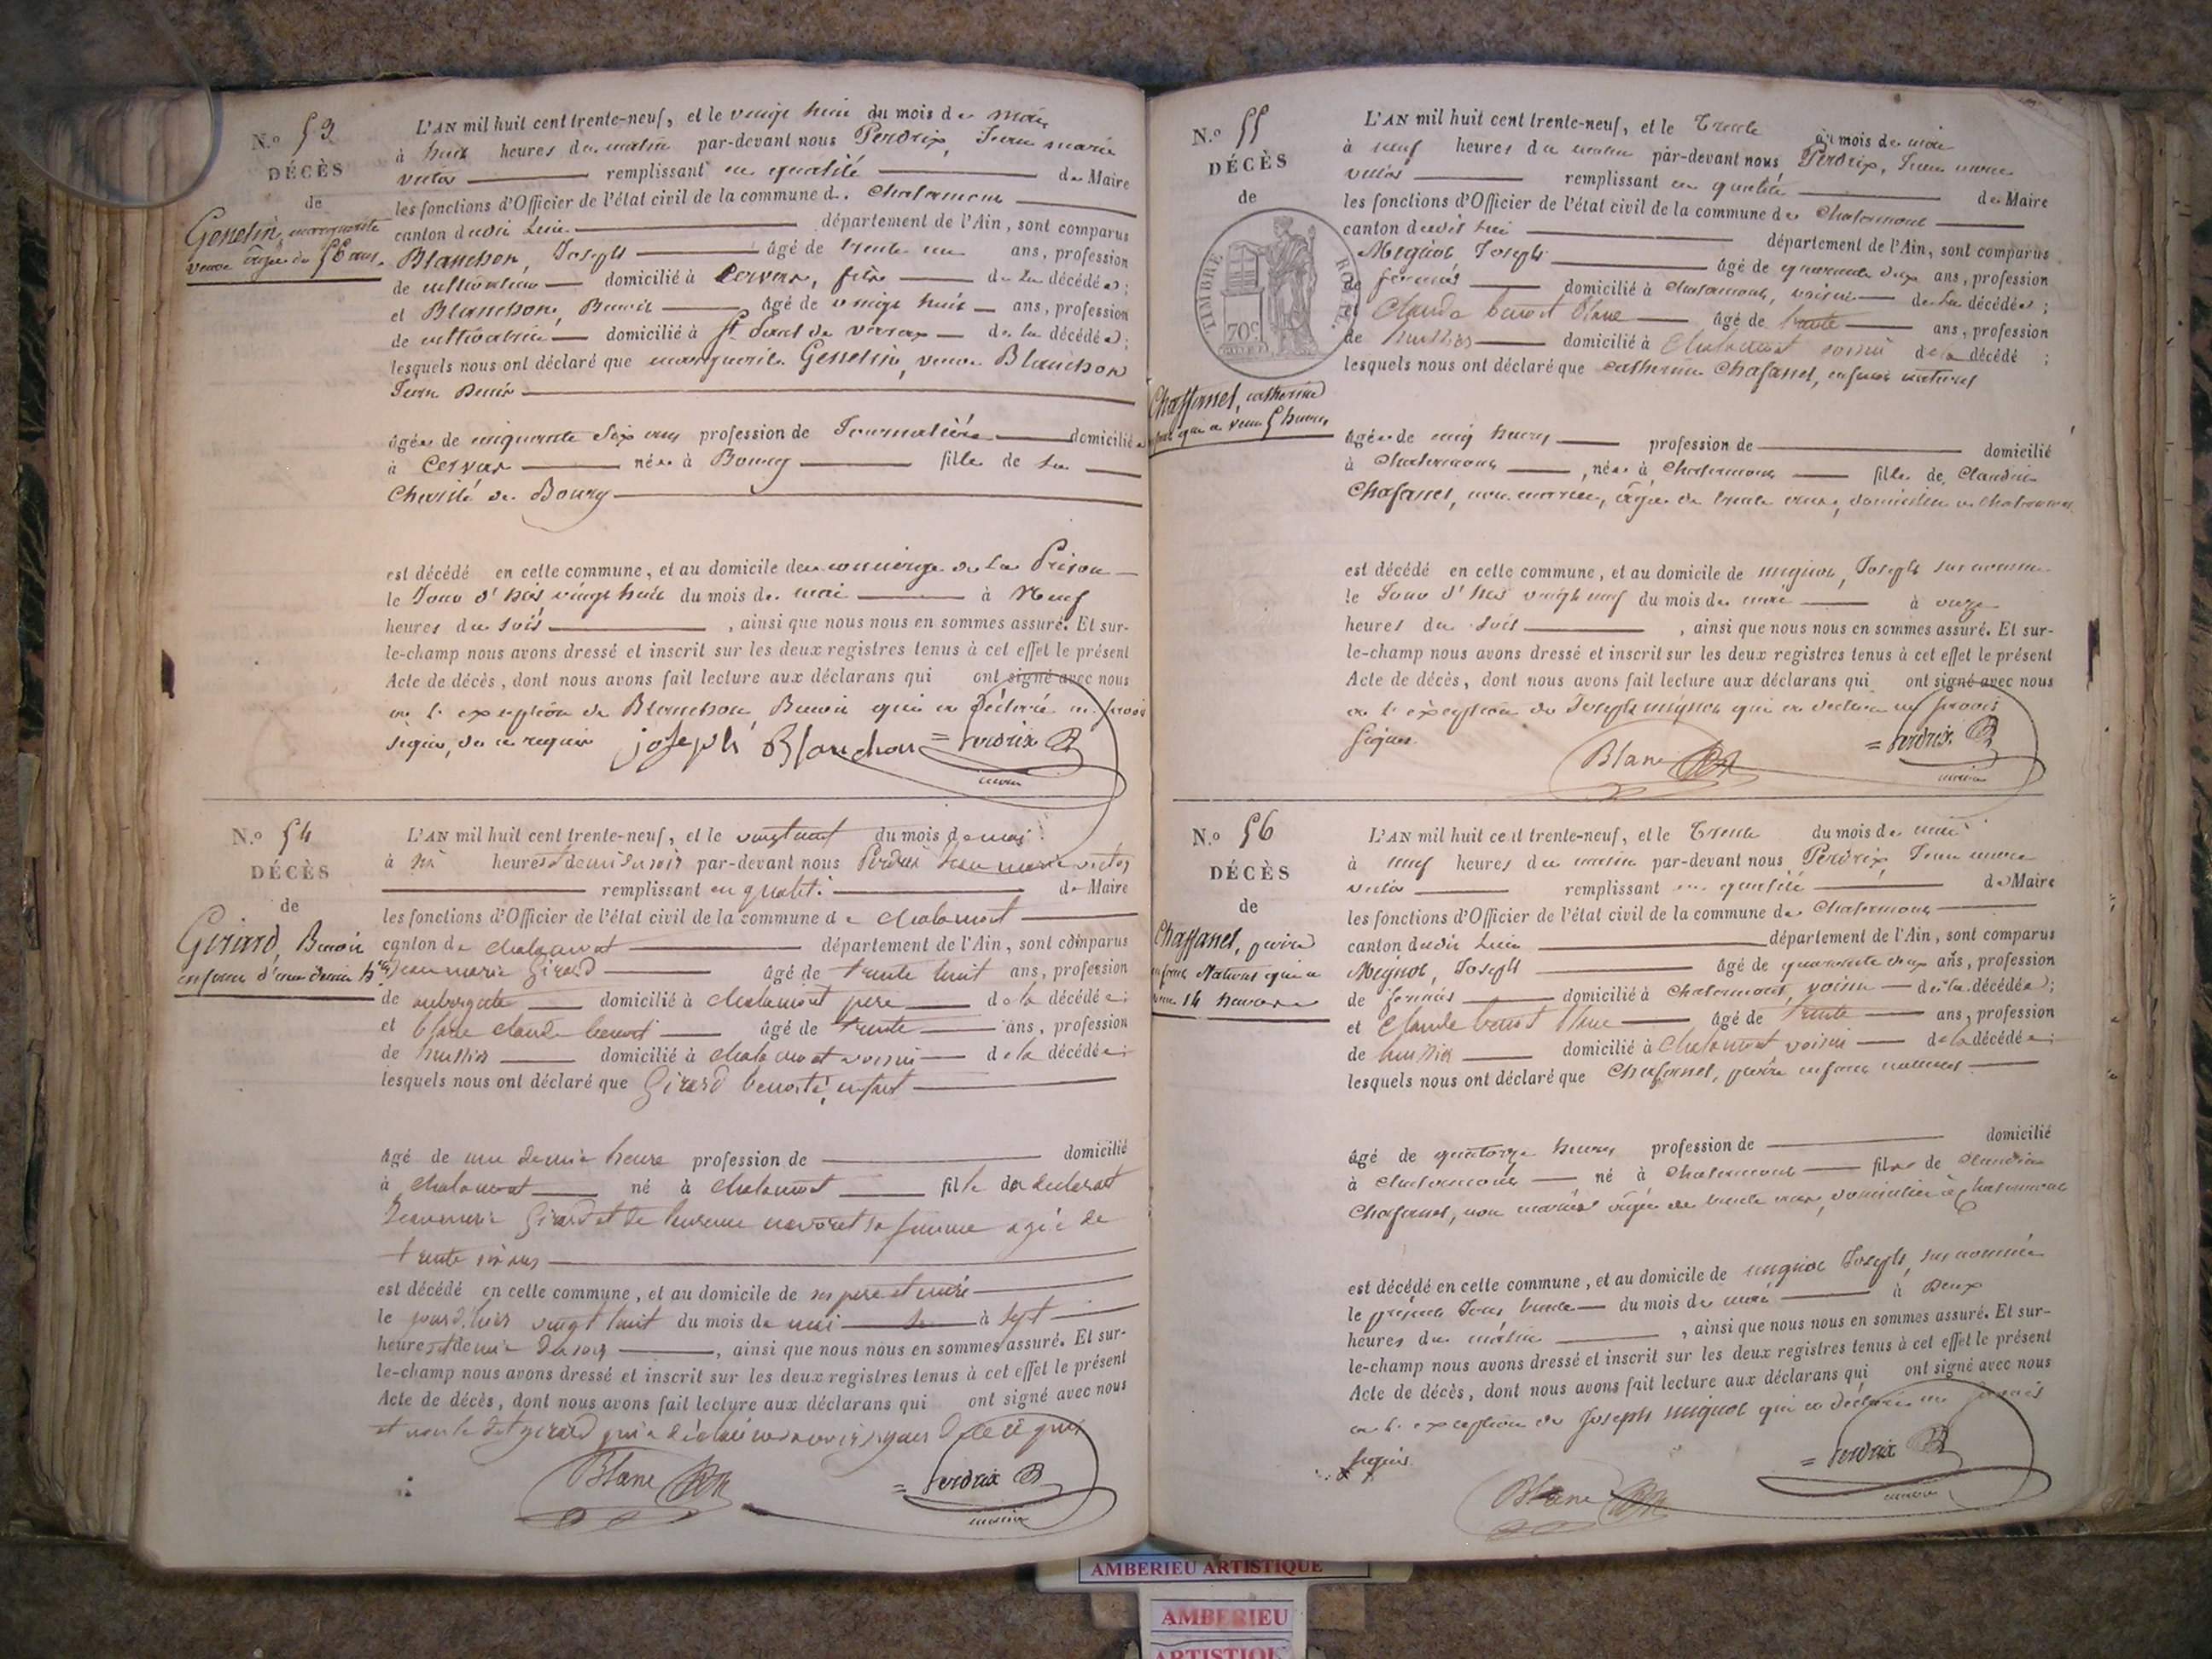 N.o 53
DÉCÈS
de
Genetin, marguerite
veuve âgée de 56 ans.
L'AN mil huit cent trente-neuf, et le vingt huit du mois de mai
à huit heures du matin par-devant nous Perdrix, Jean marie
victor remplissant en qualité de Maire
les fonctions d'Officier de l'état civil de la commune de Chalamont
canton dudit lieu département de l'Ain, sont comparus
Blanchon, Joseph âgé de trente un ans, profession
de cultivateur domicilié à Cervas, fils de la décédée;
et Blanchon, Benoit âgé de vingt huit ans, profession
de cultivateur domicilié à St. Paul de varax de la décédée;
lesquels nous ont déclaré que marguerite Genetin, veuve Blanchon
Jean Denis
âgée de cinquante six ans profession de Journalière domicilié
à Cervas née à Bourg fille de la
Charité de Bourg
est décédé en cette commune, et au domicile du concierge de la Prison
le Jour d'hier vingt huit du mois de mai à Neuf
heures du soir , ainsi que nous nous en sommes assuré. Et sur-
le-champ nous avons dressé et inscrit sur les deux registres tenus à cet effet le présent
Acte de décès, dont nous avons fait lecture aux déclarans qui ont signé avec nous
à l'exception de Blanchon Benoit qui a déclaré ne savoir
signer, de ce requis joseph Blanchon = Perdrix
maire
N.o 54
DÉCÈS
de
Girard, Benoit
enfant d'une demie hre
L'AN mil huit cent trente-neuf, et le vingt neuf du mois de mai
à six heures et demi du soir par-devant nous Perdrix Jean marie victor
remplissant en qualité de Maire
les fonctions d'Officier de l'état civil de la commune de chalamont
canton de chalamont département de l'Ain, sont comparus
Jean marie Girard âgé de trente huit ans, profession
de aubergiste domicilié à chalamont pere de la décédée;
et blanc claude benoit âgé de trente ans, profession
de huissier domicilié à chalamont voisin de la décédée;
lesquels nous ont déclaré que Girard benoit, enfant
âgé de une demie heure profession de domicilié
à chalamont né à chalamont fils du declarant
Jean marie Girard et de sa femme agée de
trente six ans
est décédé en cette commune, et au domicile de ses pere et mere
le jour d'hier vingt huit du mois de mai à sept
heures et demie du soir , ainsi que nous nous en sommes assuré. Et sur-
le-champ nous avons dressé et inscrit sur les deux registres tenus à cet effet le présent
Acte de décès, dont nous avons fait lecture aux déclarans qui ont signé avec nous
et non le dit girard qui a déclaré ne savoir signer de ce requis
Blanc = Perdrix
maire
N.o 55
DÉCÈS
de
TIMBRE ROYAL
70c
Chaffanel, catherine
enfant qui a vecu 5 heures
L'AN mil huit cent trente-neuf, et le Trente du mois de mai
à neuf heures du matin par-devant nous Perdrix, Jean marie
victor remplissant en qualité de Maire
les fonctions d'Officier de l'état civil de la commune de Chalamont
canton dudit lieu département de l'Ain, sont comparus
Mignot, Joseph âgé de quarante deux ans, profession
de fermier domicilié à chalamont, voisin de la décédée;
et Claude benoit blanc âgé de trente ans, profession
de huissier domicilié à Chalamont voisin de la décédé ;
lesquels nous ont déclaré que catherine Chafanel, enfant naturel
âgée de cinq heures profession de domicilié
à Chalamont , née à Chalamont fille de Claudine
Chafanel, non mariée, âgée de trente ans, domiciliée à Chalamont
est décédé en cette commune, et au domicile de mignot, Joseph sus nommé
le Jour d'hier vingt neuf du mois de mai à onze
heures du soir , ainsi que nous nous en sommes assuré. Et sur-
le-champ nous avons dressé et inscrit sur les deux registres tenus à cet effet le présent
Acte de décès, dont nous avons fait lecture aux déclarans qui ont signé avec nous
à l'exception de Joseph mignot qui a déclaré ne savoir
signer.
Blanc = Perdrix
maire
N.o 56
DÉCÈS
de
Chaffanel, pierre
enfant Naturel qui a
vecu 14 heures
L'AN mil huit cent trente-neuf, et le Trente du mois de mai
à neuf heures du matin par-devant nous Perdrix, Jean marie
victor remplissant en qualité de Maire
les fonctions d'Officier de l'état civil de la commune de Chalamont
canton dudit lieu département de l'Ain, sont comparus
Mignot, Joseph âgé de quarante deux ans, profession
de fermier domicilié à Chalamont, voisin de la décédée;
et Claude benoit blanc âgé de trente ans, profession
de huissier domicilié à Chalamont voisin de la décédée;
lesquels nous ont déclaré que Chafanel, pierre enfant naturel
âgé de quatorze heures profession de domicilié
à Chalamont né à Chalamont fils de Claudine
Chafanel, non mariée âgée de trente ans, domiciliée à Chalamont
est décédé en cette commune, et au domicile de mignot Joseph, sus nommé
le présent Jour trente du mois de mai à Deux
heures du matin , ainsi que nous nous en sommes assuré. Et sur-
le-champ nous avons dressé et inscrit sur les deux registres tenus à cet effet le présent
Acte de décès, dont nous avons fait lecture aux déclarans qui ont signé avec nous
à l'exception de Joseph mignot qui a déclaré ne savoir
signer.
Blanc = Perdrix
maire
AMBERIEU ARTISTIQUE
AMBERIEU
ARTISTIQUE